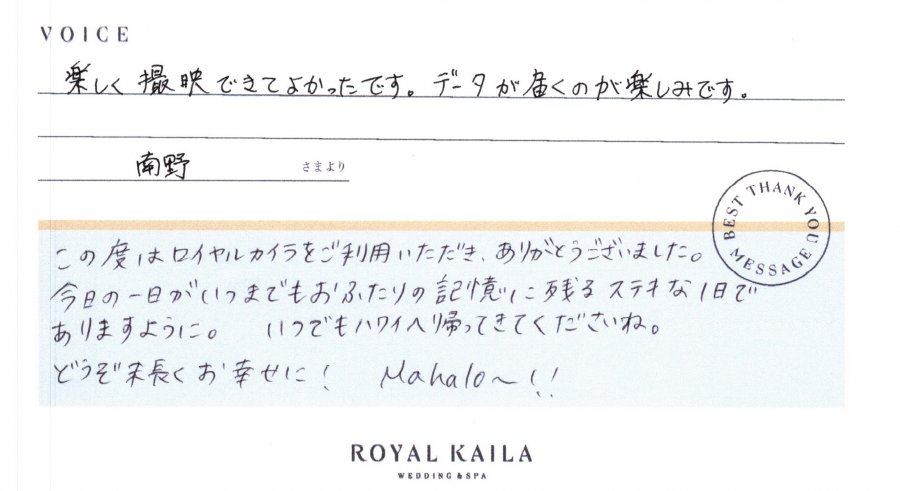 VOICE
楽しく撮映できてよかったです。データが届くのが楽しみです。
南野 さまより
BEST THANK YOU MESSAGE
この度はロイヤルカイラをご利用いただき、ありがとうございました。
今日の一日がいつまでもおふたりの記憶に残るステキな1日で
ありますように。 いつでもハワイへ帰ってきてくださいね。
どうぞ末長くお幸せに! Mahalo〜!!
ROYAL KAILA
WEDDING & SPA